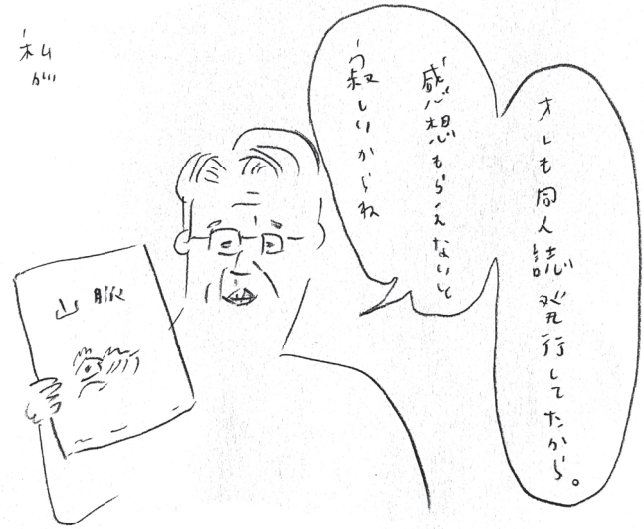 オレも同人誌発行してたから。
感想もらえないと
寂しいからね
山脈
私
が